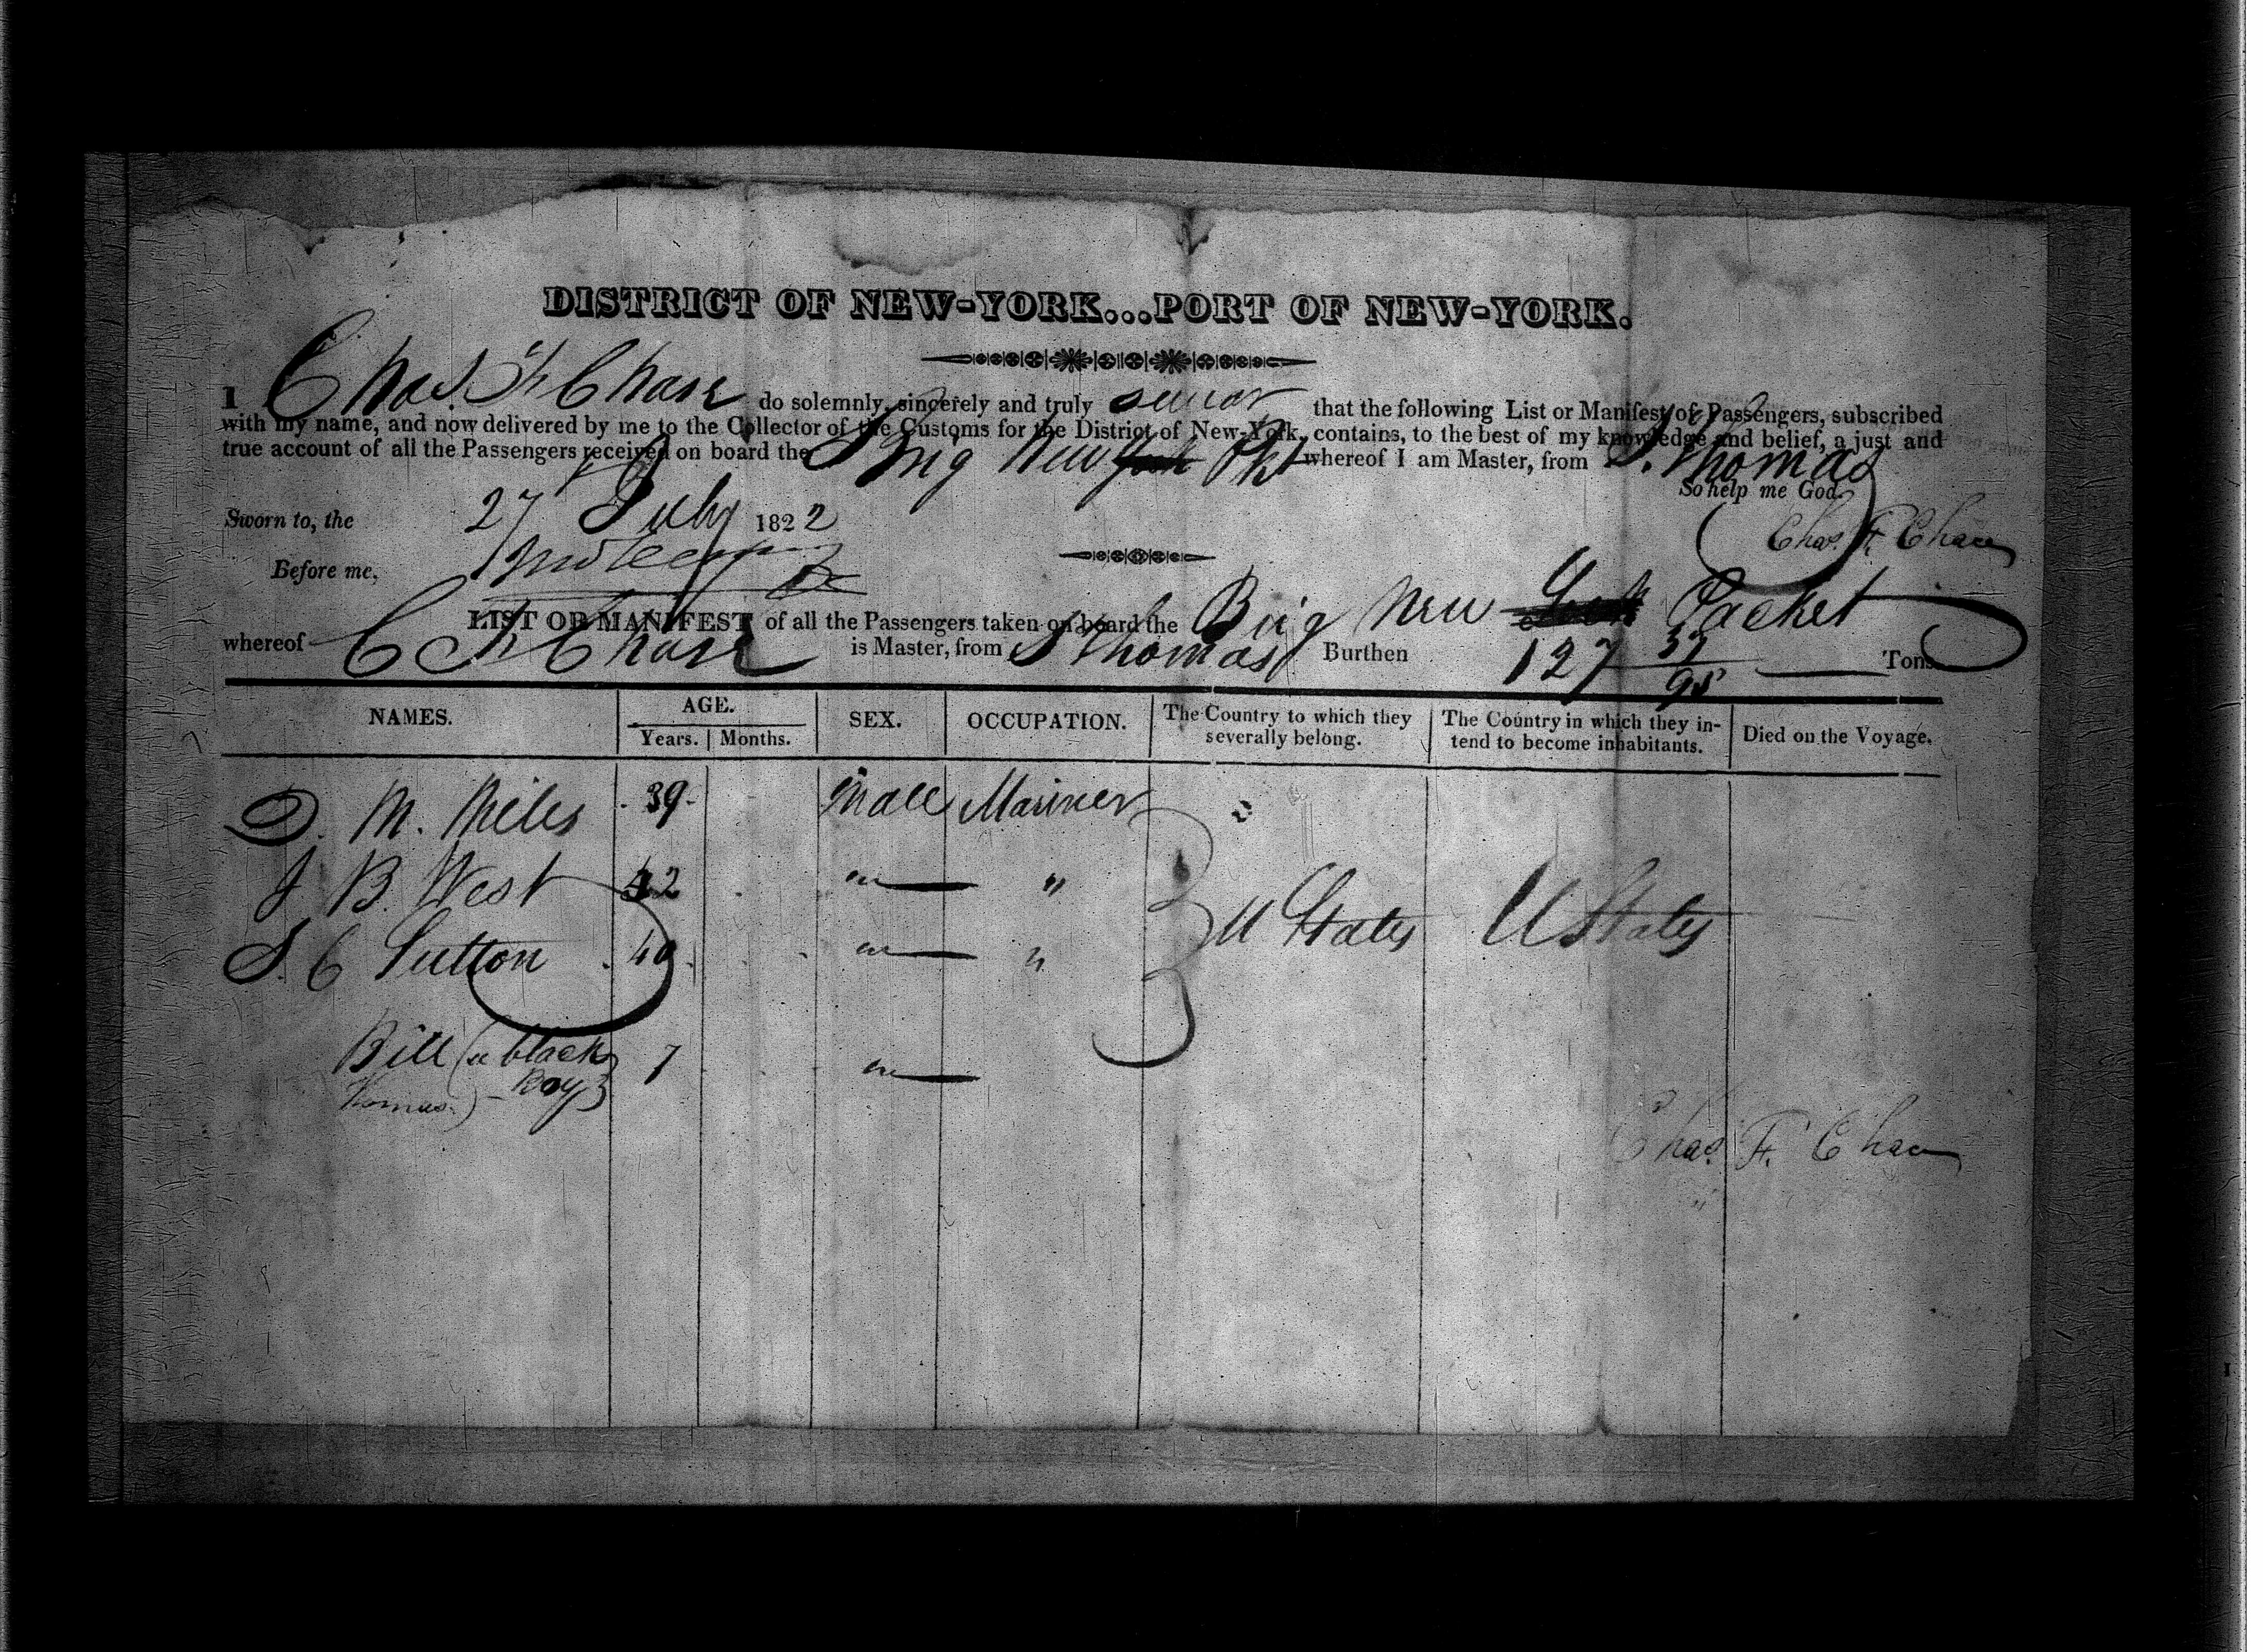 DISTRICT OF NEW-YORK...PORT OF NEW-YORK.
I Chas. F. Chase do solemnly, sincerely and truly swear that the following List or Manifest of Passengers, subscribed
with my name, and now delivered by me to the Collector of the Customs for the District of New-York, contains, to the best of my knowledge and belief, a just and
true account of all the Passengers received on board the Brig New York Pkt whereof I am Master, from St. Thomas
So help me God.
Sworn to, the 27 July 1822
Chas. F. Chase
Before me,
LIST OR MANIFEST of all the Passengers taken on board the Brig New York Packet
whereof C F Chase is Master, from St Thomas Burthen 127 37/95 Tons.
NAMES. AGE. SEX. OCCUPATION. The Country to which they severally belong. The Country in which they in-tend to become inhabitants. Died on the Voyage.
Years. Months.
D. M. Miles 39 Male Mariner
J B. West 42 " "
S. C Sutton 40 " " U States U States
Bill (a black Boy) 7 "
Thomas)
Chas. F. Chase